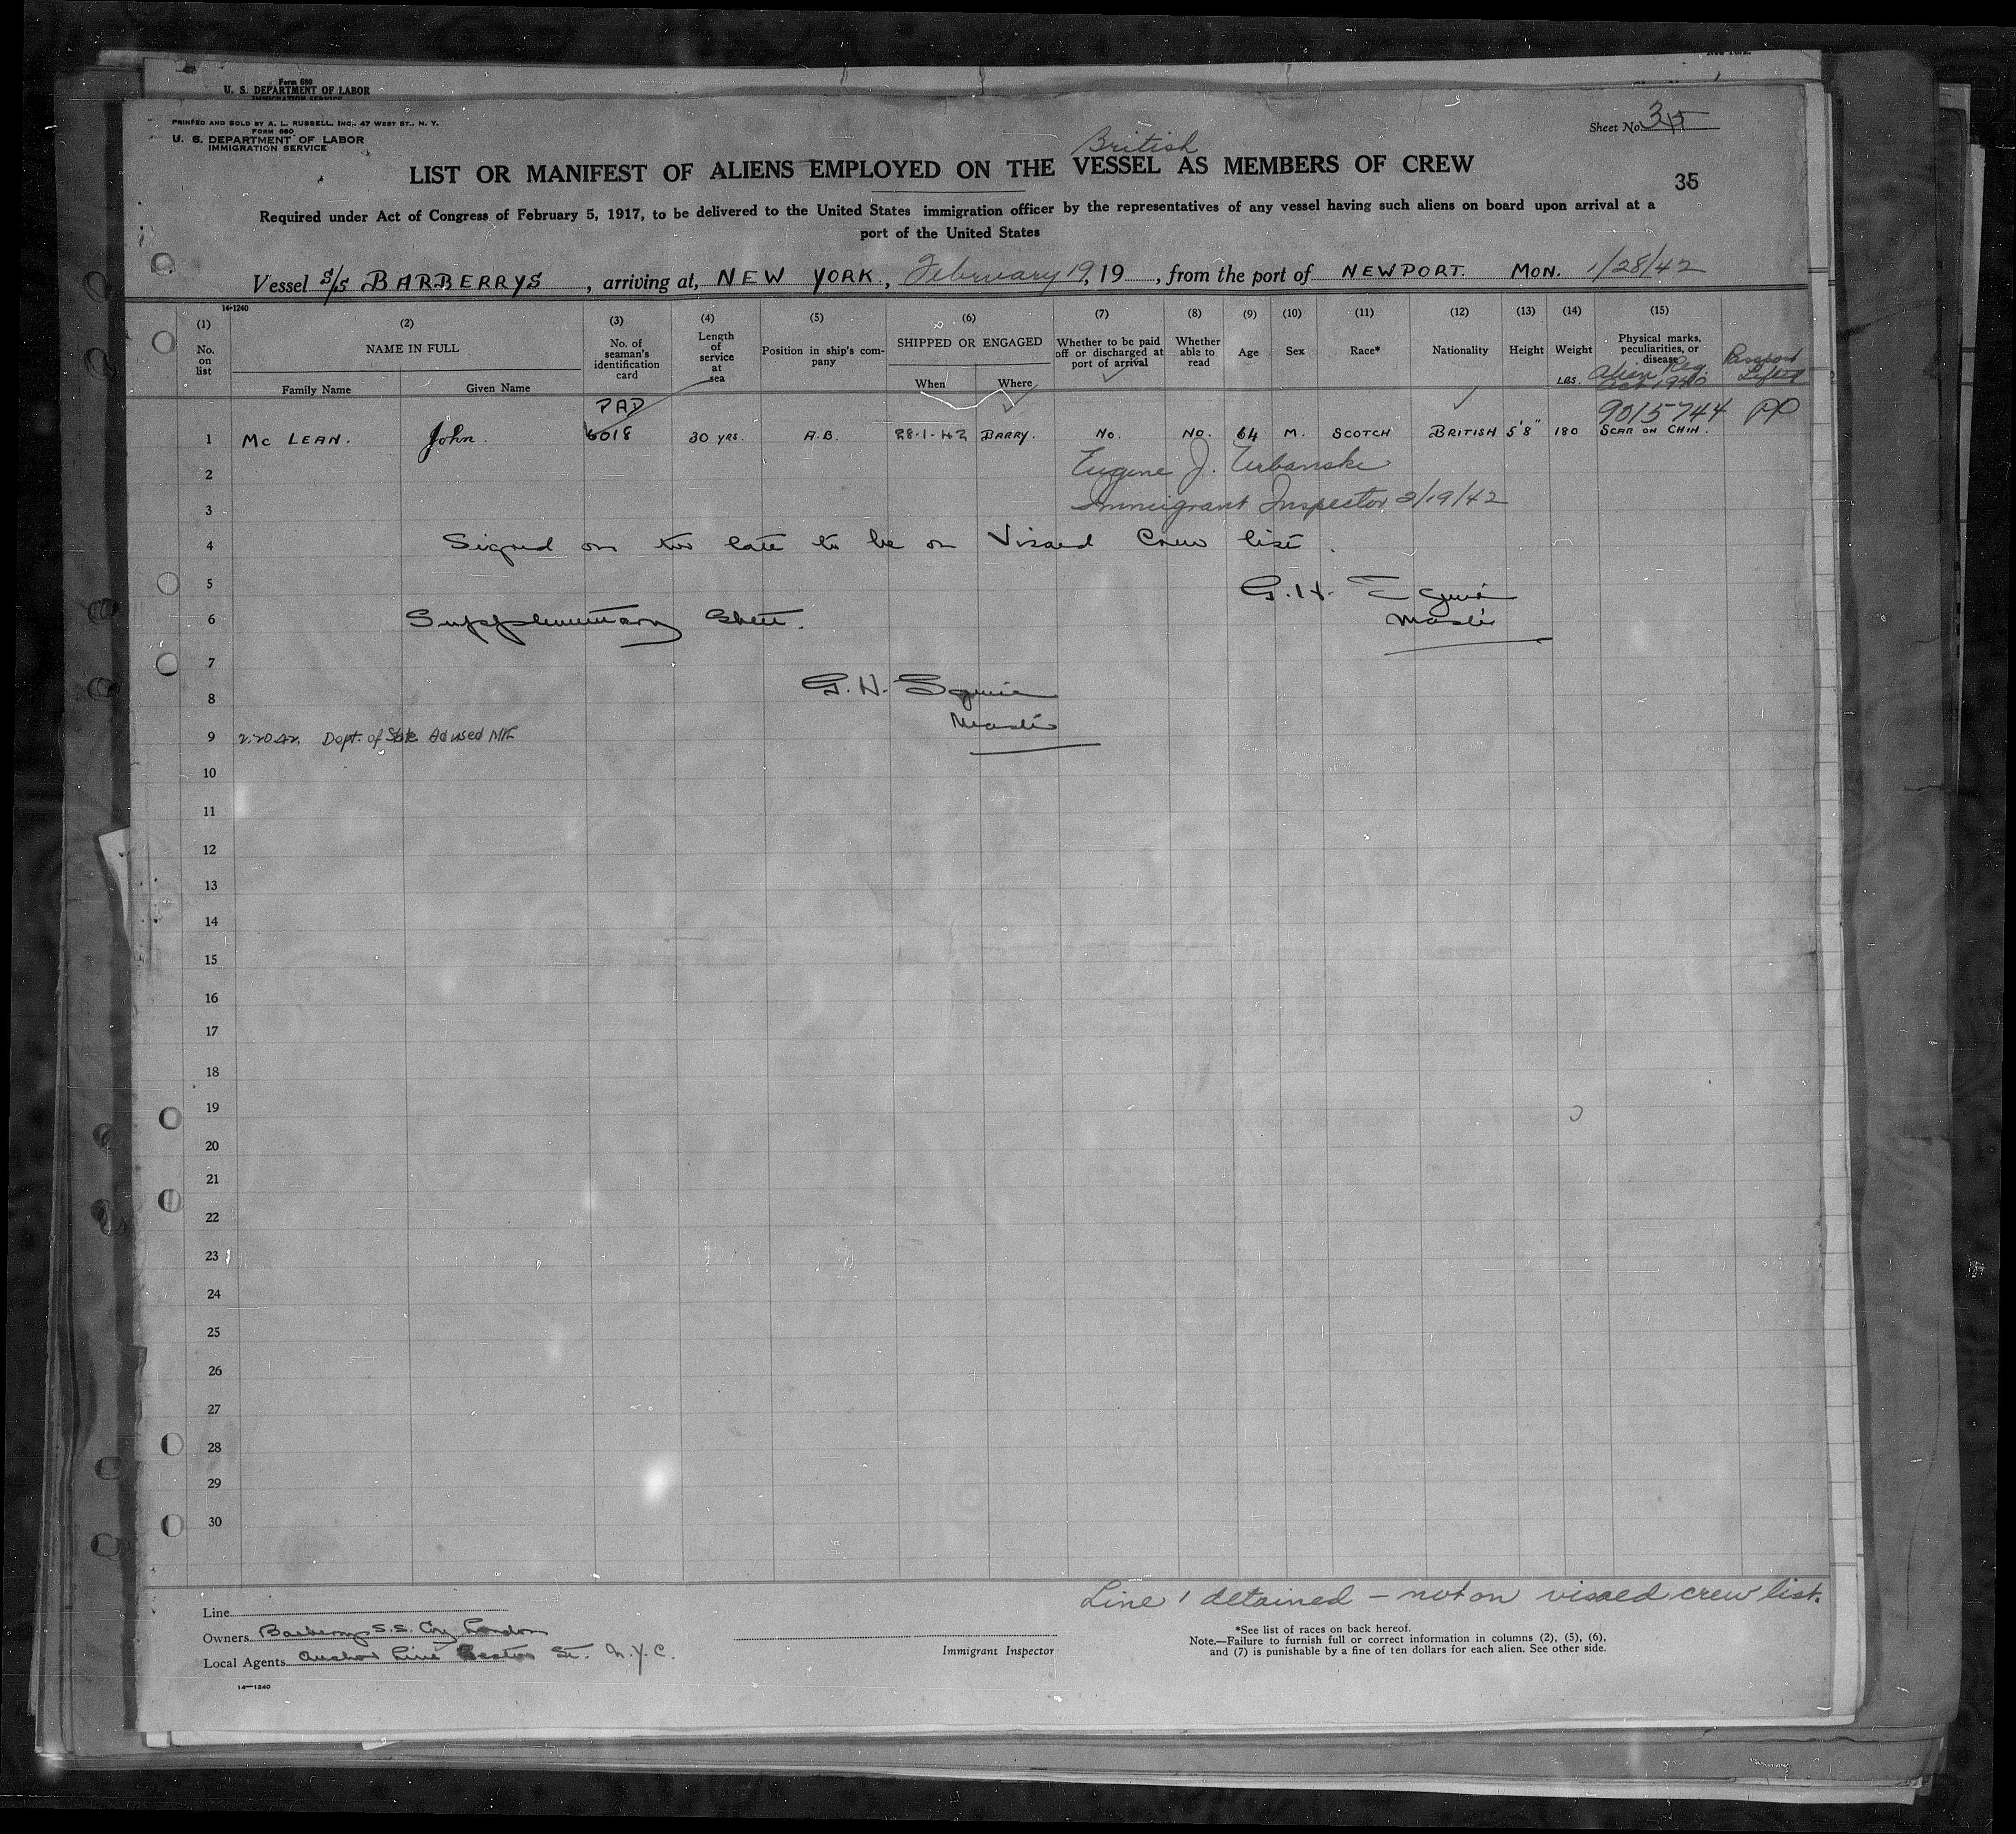 Form 680
U. S. DEPARTMENT OF LABOR
IMMIGRATION SERVICE
PRINTED AND SOLD BY A. L. RUSSELL, INC., 47 WEST ST., N. Y.
FORM 680
U. S. DEPARTMENT OF LABOR
IMMIGRATION SERVICE
Sheet No.
British
LIST OR MANIFEST OF ALIENS EMPLOYED ON THE VESSEL AS MEMBERS OF CREW
35
Required under Act of Congress of February 5, 1917, to be delivered to the United States immigration officer by the representatives of any vessel having such aliens on board upon arrival at a
port of the United States
Vessel S/S BARBERRYS, arriving at, NEW YORK, February 19, 19, from the port of NEWPORT. MON. 1/28/42
14-1240
(1) No. on list
(2) NAME IN FULL
Family Name Given Name
(3) No. of seaman's identification card
(4) Length of service at sea
(5) Position in ship's company
(6) SHIPPED OR ENGAGED
When Where
(7) Whether to be paid off or discharged at port of arrival
(8) Whether able to read
(9) Age
(10) Sex
(11) Race*
(12) Nationality
(13) Height
(14) Weight LBS.
(15) Physical marks, peculiarities, or disease
Alien Reg. Act 1940
Passport Lifted
PAD 9015744 PP
1 Mc LEAN. John. 6018 30 yrs. A.B. 28-1-42 BARRY. No. No. 64 M. SCOTCH BRITISH 5'8" 180 SCAR ON CHIN.
2 Eugene J. Urbanski
3 Immigrant Inspector 2/19/42
4 Signed on too late to be on Visaed Crew list.
5 G. H. Squire
6 Supplementary Sheet. Master
7
8 G. H. Squire
Master
9 2.20.42. Dept. of State Advised
10
11
12
13
14
15
16
17
18
19
20
21
22
23
24
25
26
27
28
29
30
Line 1 detained – not on visaed crew list.
Line
Owners Barberrys S.S. Coy London
Local Agents Anchor Line St. N.Y.C.
Immigrant Inspector
*See list of races on back hereof.
Note.—Failure to furnish full or correct information in columns (2), (5), (6),
and (7) is punishable by a fine of ten dollars for each alien. See other side.
14—1240